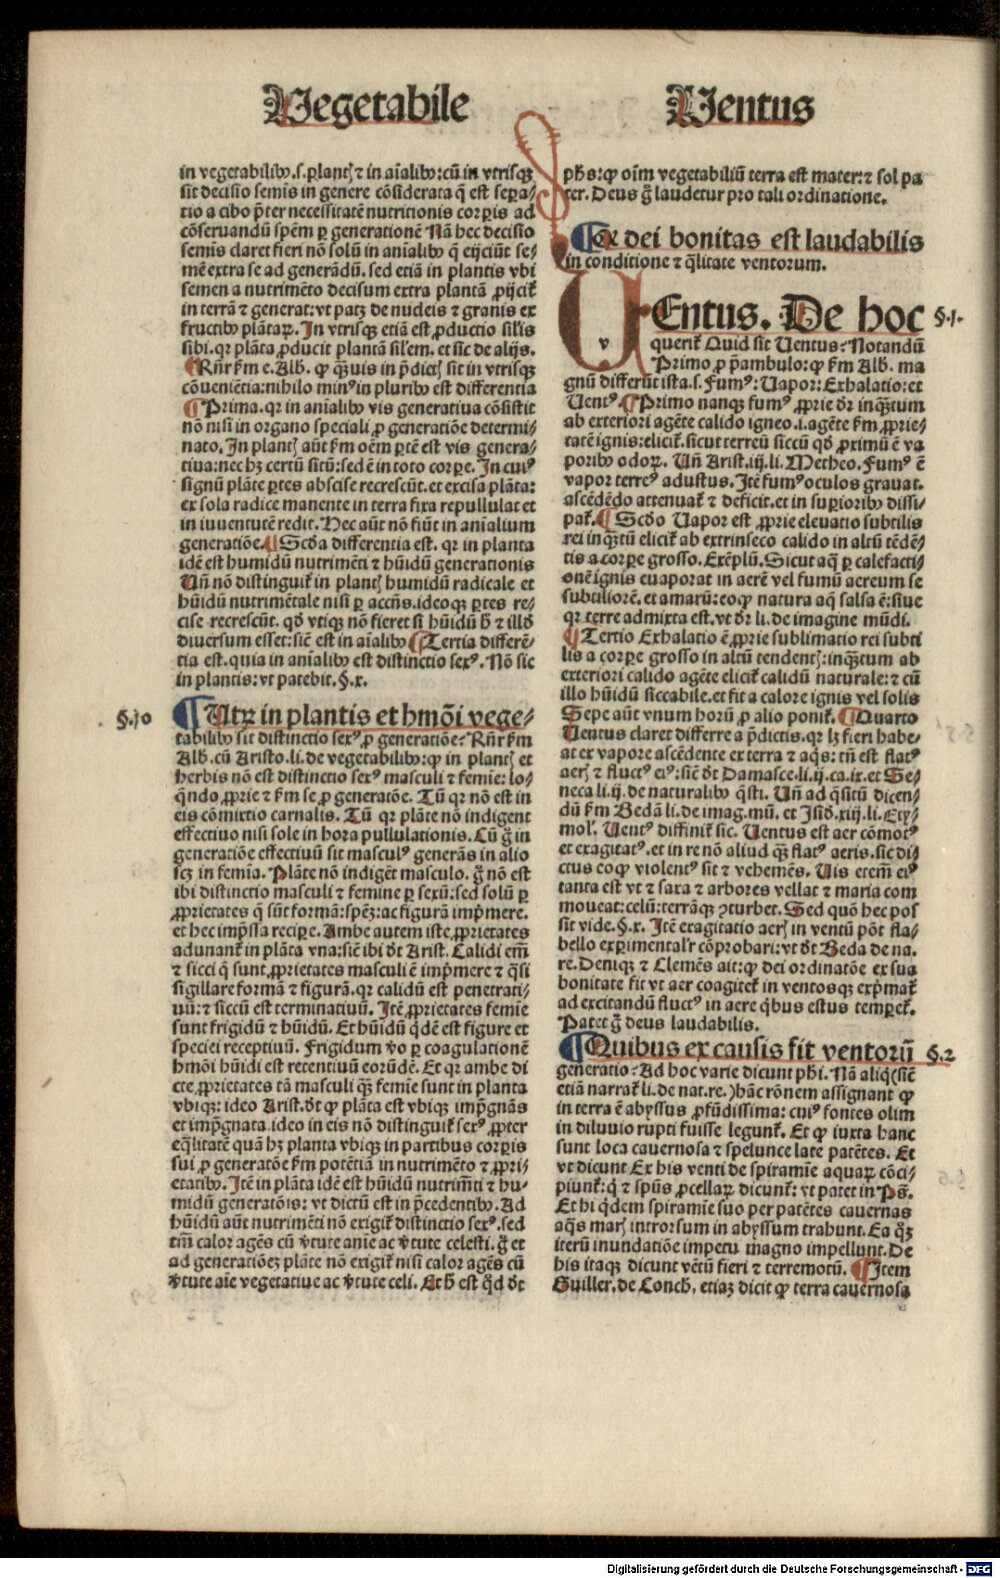 Vegetabile
Ventus
in vegetabilibꝰ.s.plantꝭ ⁊ in aīalibꝰ: cū in vtrisqꝫ
sit decisio semīs in genere cōsiderata q̄ est sepa/
tio a cibo p̄ter necessitatē nutritionis corpis ad
cōseruandū spēm ꝑ generationē Nā hec decisio
semīs claret fieri nō solū in anīalibꝰ q̄ eijciūt se/
mē extra se ad generādū. sed etiā in plantis vbi
semen a nutrimēto decisum extra plantā ꝓijcit᷑
in terrā ⁊ generat: vt patꝫ de nucleis ⁊ granis ex
fructibꝰ plātaꝝ. In vtrisqꝫ etiā est ꝓductio sil'is
sibi. qꝛ plāta ꝓducit plantā sil'em. et sic de alijs.
¶ Rn̄r ẜm e. Alb. ꝙ q̄uis in p̄dictꝭ sit in vtrisqꝫ
cōueniētia: nihilo minꝰ in pluribꝰ est differentia
¶ Prima. qꝛ in anīalibꝰ vis generatiua cōsistit
nō nisi in organo speciali ꝓ generatiōe determi/
nato. In plantꝭ aūt ẜm oēm ꝑtē est vis genera/
tiua: nec hꝫ certū sitū: sed ē in toto corpe. In cuiꝰ
signū plāte ꝑtes abscise recrescūt. et excisa plāta:
ex sola radice manente in terra fixa repullulat et
in iuuentutē redit. Hec aūt nō fiūt in anīalium
generatiōe. ¶ Scd̄a differentia est. qꝛ in planta
idē est humidū nutrimēti ⁊ hūidū generationis
Vn̄ nō distinguit᷑ in plantꝭ humidū radicale et
hūidū nutrimētale nisi ꝑ accn̄s. ideoqꝫ ꝑtes re/
cise recrescūt. qd̄ vtiqꝫ nō fieret si hūidū h̄ ⁊ illd̄
diuersum esset: sic̄ est in aīalibꝰ ¶ Tertia differē/
tia est. quia in anīalibꝰ est distinctio sexꝰ. Nō sic
in plantis: vt patebit. §.x.
§.10
¶ Vtꝝ in plantis et hmōi vege/
tabilibꝰ sit distinctio sexꝰ ꝓ generatiōe? Rn̄r ẜm
Alb. cū Aristo. li. de vegetabilibꝰ: ꝙ in plantꝭ et
herbis nō est distinctio sexꝰ masculi ⁊ femīe: lo/
q̄ndo ꝓprie ⁊ ẜm se ꝓ generatōe. Tū qꝛ nō est in
eis cōmixtio carnalis. Tū qꝛ plāte nō indigent
effectiuo nisi sole in hora pullulationis. Cū g̊ in
generatiōe effectiuū sit masculꝰ generās in alio
scꝫ in femīa. Plāte nō indigēt masculo. g̊ nō est
ibi distinctio masculi ⁊ femine ꝑ sexū: sed solū ꝑ
ꝓprietates q̄ sūt formā: spēꝫ: ac figurā imp̄mere.
et hec imp̄ssa recipe. Ambe autem iste ꝓprietates
adunant᷑ in plāta vna: sic̄ ibi d̄t Arist. Calidi em̄
⁊ sicci q̄ sunt ꝓprietates masculi ē imp̄mere ⁊ q̄si
sigillare formā ⁊ figurā. qꝛ calidū est penetrati/
uū: ⁊ siccū est terminatiuū. Itē ꝓprietates femīe
sunt frigidū ⁊ hūidū. Et hūidū q̄dē est figure et
speciei receptiuū. Frigidum v̄o ꝑ coagulationē
hmōi hūidi est retentiuū eorūdē. Et qꝛ ambe di
cte ꝓprietates tā masculi q̄ꝫ femīe sunt in planta
vbiqꝫ: ideo Arist. d̄t ꝙ plāta est vbiqꝫ imp̄gnās
et imp̄gnata. ideo in eis nō distinguit᷑ sexꝰ. ꝓpter
eq̄litatē quā hꝫ planta vbiqꝫ in partibus corpis
sui ꝓ generatōe ẜm potētiā in nutrimēto ⁊ ꝓpri/
etatibꝰ. Itē in plāta idē est hūidū nutrim̄ti ⁊ hu/
midū generatōis: vt dictū est in p̄cedentibꝰ. Ad
hūidū aūt nutrimēti nō exigit᷑ distinctio sexꝰ. sed
tm̄ calor agēs cū v̄tute anīe ac v̄tute celesti. g̊ et
ad generatiōeꝫ plāte nō exigit᷑ nisi calor agēs cū
v̄tute aīe vegetatiue ac v̄tute celi. Et h̄ est q̄d d̄t
ph̄s: ꝙ oīm vegetabiliū terra est mater: ⁊ sol pa
ter. Deus g̊ laudetur pro tali ordinatione.
¶ Qꝛ dei bonitas est laudabilis
in conditione ⁊ q̄litate ventorum.
VEntus. De hoc
§.1.
v
querit᷑ Quid sit Ventus? Notandū
Primo ꝓ p̄ambulo: ꝙ ẜm Alb. ma
gnū differūt ista.s. Fumꝰ: Vapor: Exhalatio: et
Ventꝰ. ¶ Primo nanqꝫ fumꝰ ꝓprie d̄r inq̄ꝫtum
ab exteriori agēte calido igneo. i. agēte ẜm ꝓprie/
tatē ignis: elicit᷑. sicut terreū siccū qd̄ proximū ē va
poribꝰ odoꝝ. Vn̄ Arist. iij. li. Metheo. Fumꝰ ē
vapor terreꝰ adustus. Itē fumꝰ oculos grauat.
ascēdēdo attenuat᷑ ⁊ deficit. et in supioribꝰ dissi/
pat᷑. ¶ Scd̄o Vapor est ꝓprie eleuatio subtilis
rei inq̄ꝫtū elicit᷑ ab extrinseco calido in altū tēdē/
tis a corpe grosso. Exēplū. Sicut aq̄ ꝑ calefacti/
onē ignis euaporat in aerē vel fumū aereum se
subtiliorē. et amarū: eoꝙ natura aq̄ salsa ē: siue
qꝛ terre admixta est. vt d̄r li. de imagine mūdi.
¶ Tertio Exhalatio ē ꝓprie sublimatio rei subti
lis a corpe grosso in altū tendentꝭ: inq̄ꝫtum ab
exteriori calido agēte elicit᷑ calidū naturale: ⁊ cū
illo hūidū siccabile. et fit a calore ignis vel solis
Sepe aūt vnum horū ꝓ alio ponit᷑. ¶ Quarto
Ventus claret differre a p̄dictis. qꝛ lꝫ fieri habe/
at ex vapore ascēdente ex terra ⁊ aq̄s: tn̄ est flatꝰ
aerꝭ ⁊ fluctꝰ eiꝰ: sic̄ d̄t Damasce. li. ij. ca. ix. et Se/
neca li. ij. de naturalibꝰ q̄sti. Vn̄ ad q̄sitū dicen/
dū ẜm Bedā li. de imag. mū. et Isid̄. xiij. li. Ety/
mol'. Ventꝰ diffinit᷑ sic. Ventus est aer cōmotꝰ
et exagitatꝰ. et in re nō aliud q̄ꝫ flatꝰ aeris. sic di/
ctus eoꝙ violentꝰ sit ⁊ vehemēs. Vis etem̄ eiꝰ
tanta est vt ⁊ saxa ⁊ arbores vellat ⁊ maria com
moueat: celū: terrāqꝫ ꝯturbet. Sed quō hec pos
sit vide. §.x. Itē exagitatio aerꝭ in ventū pōt fla/
bello expimental'r cōprobari: vt d̄t Beda de na.
re. Deniqꝫ ⁊ Clemēs ait: ꝙ dei ordinatōe ex sua
bonitate fit vt aer coagitet᷑ in ventosqꝫ exp̄mat᷑
ad excitandū fluctꝰ in aere q̄bus estus temperet᷑.
Patet g̊ deus laudabilis.
¶ Quibus ex causis fit ventorū
§.2
generatio? Ad hoc varie dicunt ph̄i. Nā aliq̄ (sic̄
etiā narrat᷑ li. de nat. re.) hāc rōnem assignant ꝙ
in terra ē abyssus ꝓfūdissima: cuiꝰ fontes olim
in diluuio rupti fuisse legunt᷑. Et ꝙ iuxta hanc
sunt loca cauernosa ⁊ spelunce late patētes. Et
vt dicunt Ex his venti de spiramīe aquaꝝ cōci/
piunt᷑: q̄ ⁊ spūs ꝓcellaꝝ dicunt᷑: vt patet in Ps̄.
Et hi q̄dem spiramīe suo per patētes cauernas
aq̄s marꝭ introrsum in abyssum trahunt. Ea q̄ꝫ
iterū inundatiōe impetu magno impellunt. De
his itaqꝫ dicunt vētū fieri ⁊ terremotū. ¶ Item
Guiller. de Conch. etiaꝫ dicit ꝙ terra cauernosa
Digitalisierung gefördert durch die Deutsche Forschungsgemeinschaft - DFG